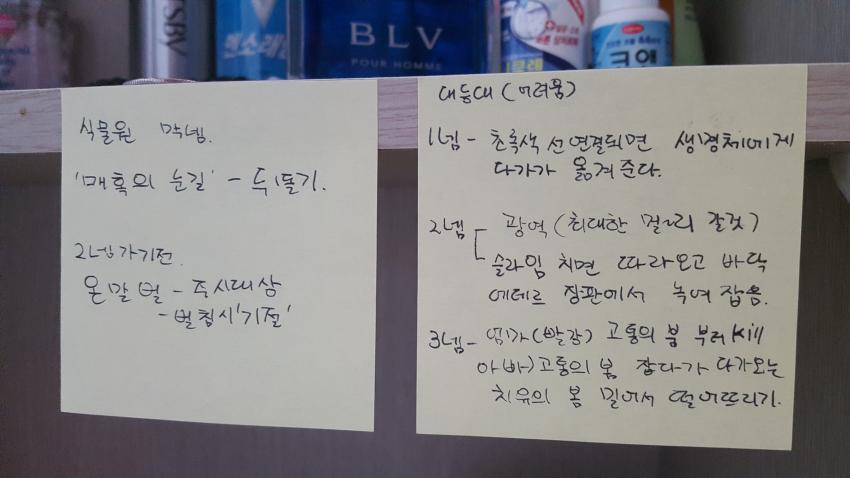 BLV
POUR HOMME
코앤
식물원 막넴.
'매혹의 눈길' - 뒤돌기.
2넴가기전
온말벌 - 주시대상
- 벌침시'기절'
대등대(어려움)
1넴- 초록색 선연결되면 생명체에게
다가가 옮겨준다.
2넴- 광역(최대한 멀~리 갈것)
슬라임 치면 따라오고 바닥
에테르 장판에서 녹여 잡음.
3넴- 엄마(빨강) 고통의 봄 부터 Kill
아빠)고통의 봄 잡다가 다가오는
치유의 봄 밀어서 떨어뜨리기.